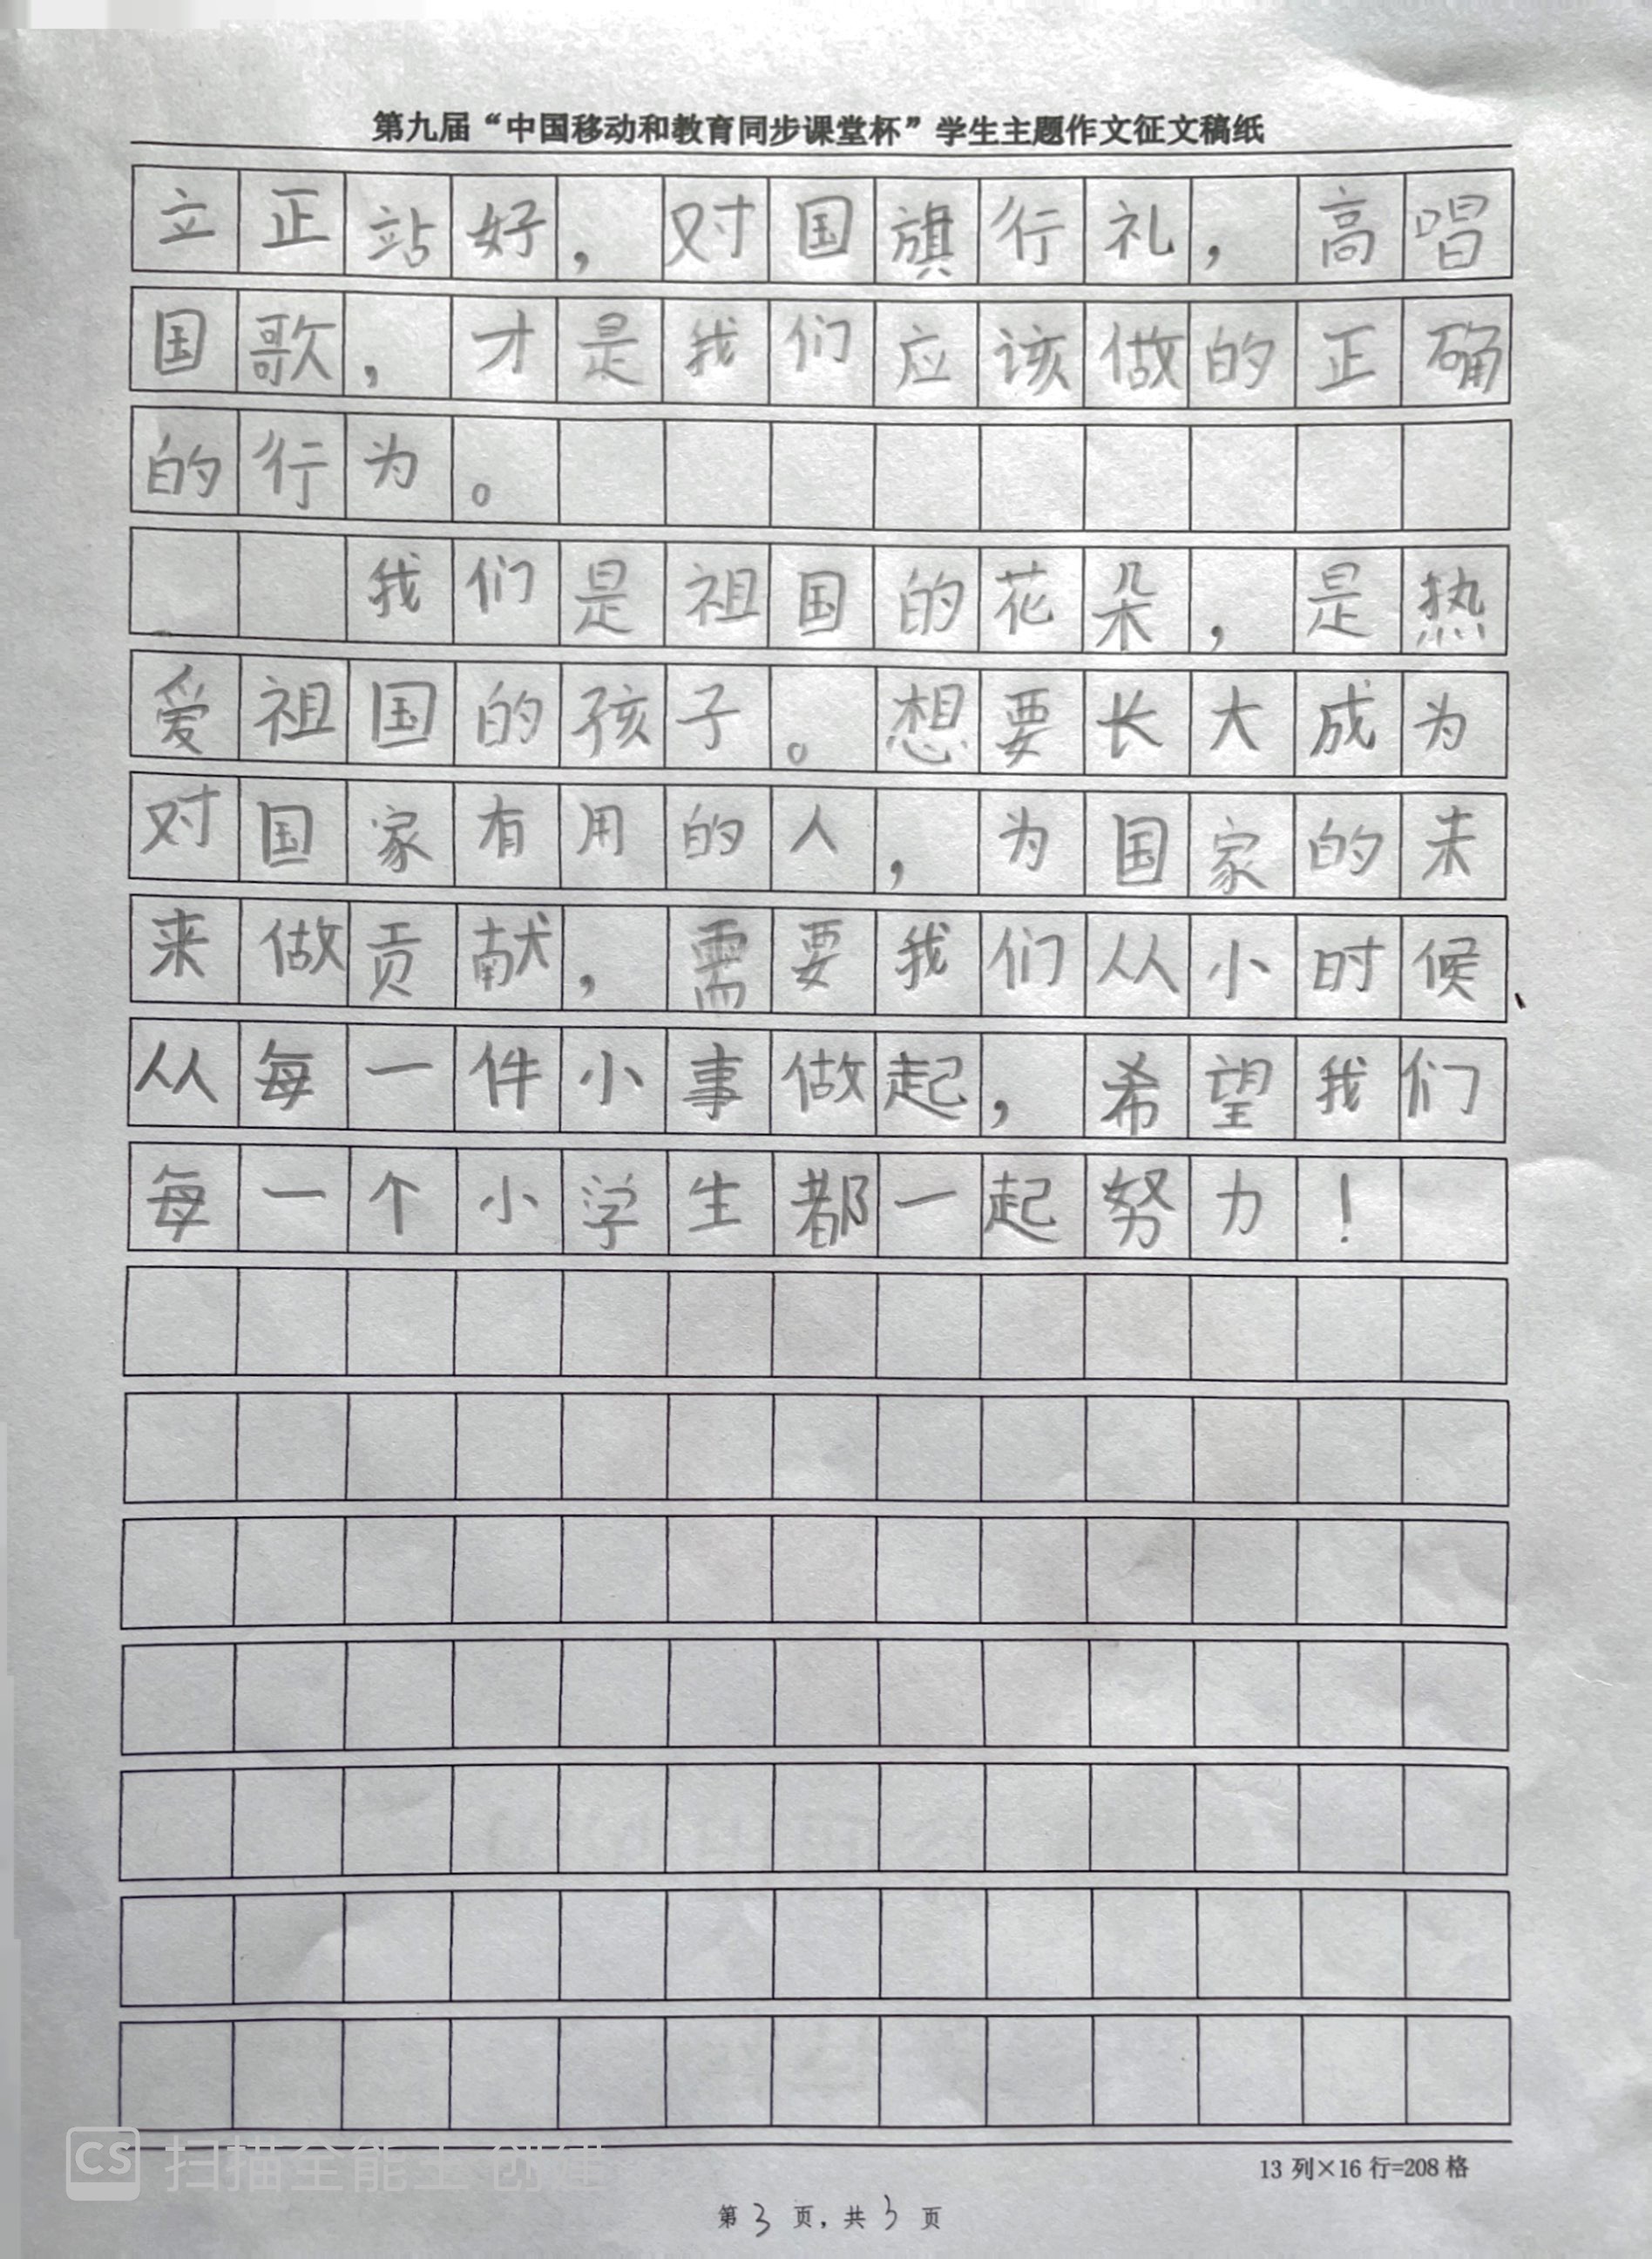 第九届“中国移动和教育同步课堂杯”学生主题作文征文稿纸
立正站好，对国旗行礼，高唱
国歌，才是我们应该做的正确
的行为。
我们是祖国的花朵，是热
爱祖国的孩子。想要长大成为
对国家有用的人，为国家的未
来做贡献，需要我们从小时候、
从每一件小事做起，希望我们
每一个小学生都一起努力！
13 列×16 行=208 格
CS 扫描全能王 创建
第 3 页，共 3 页